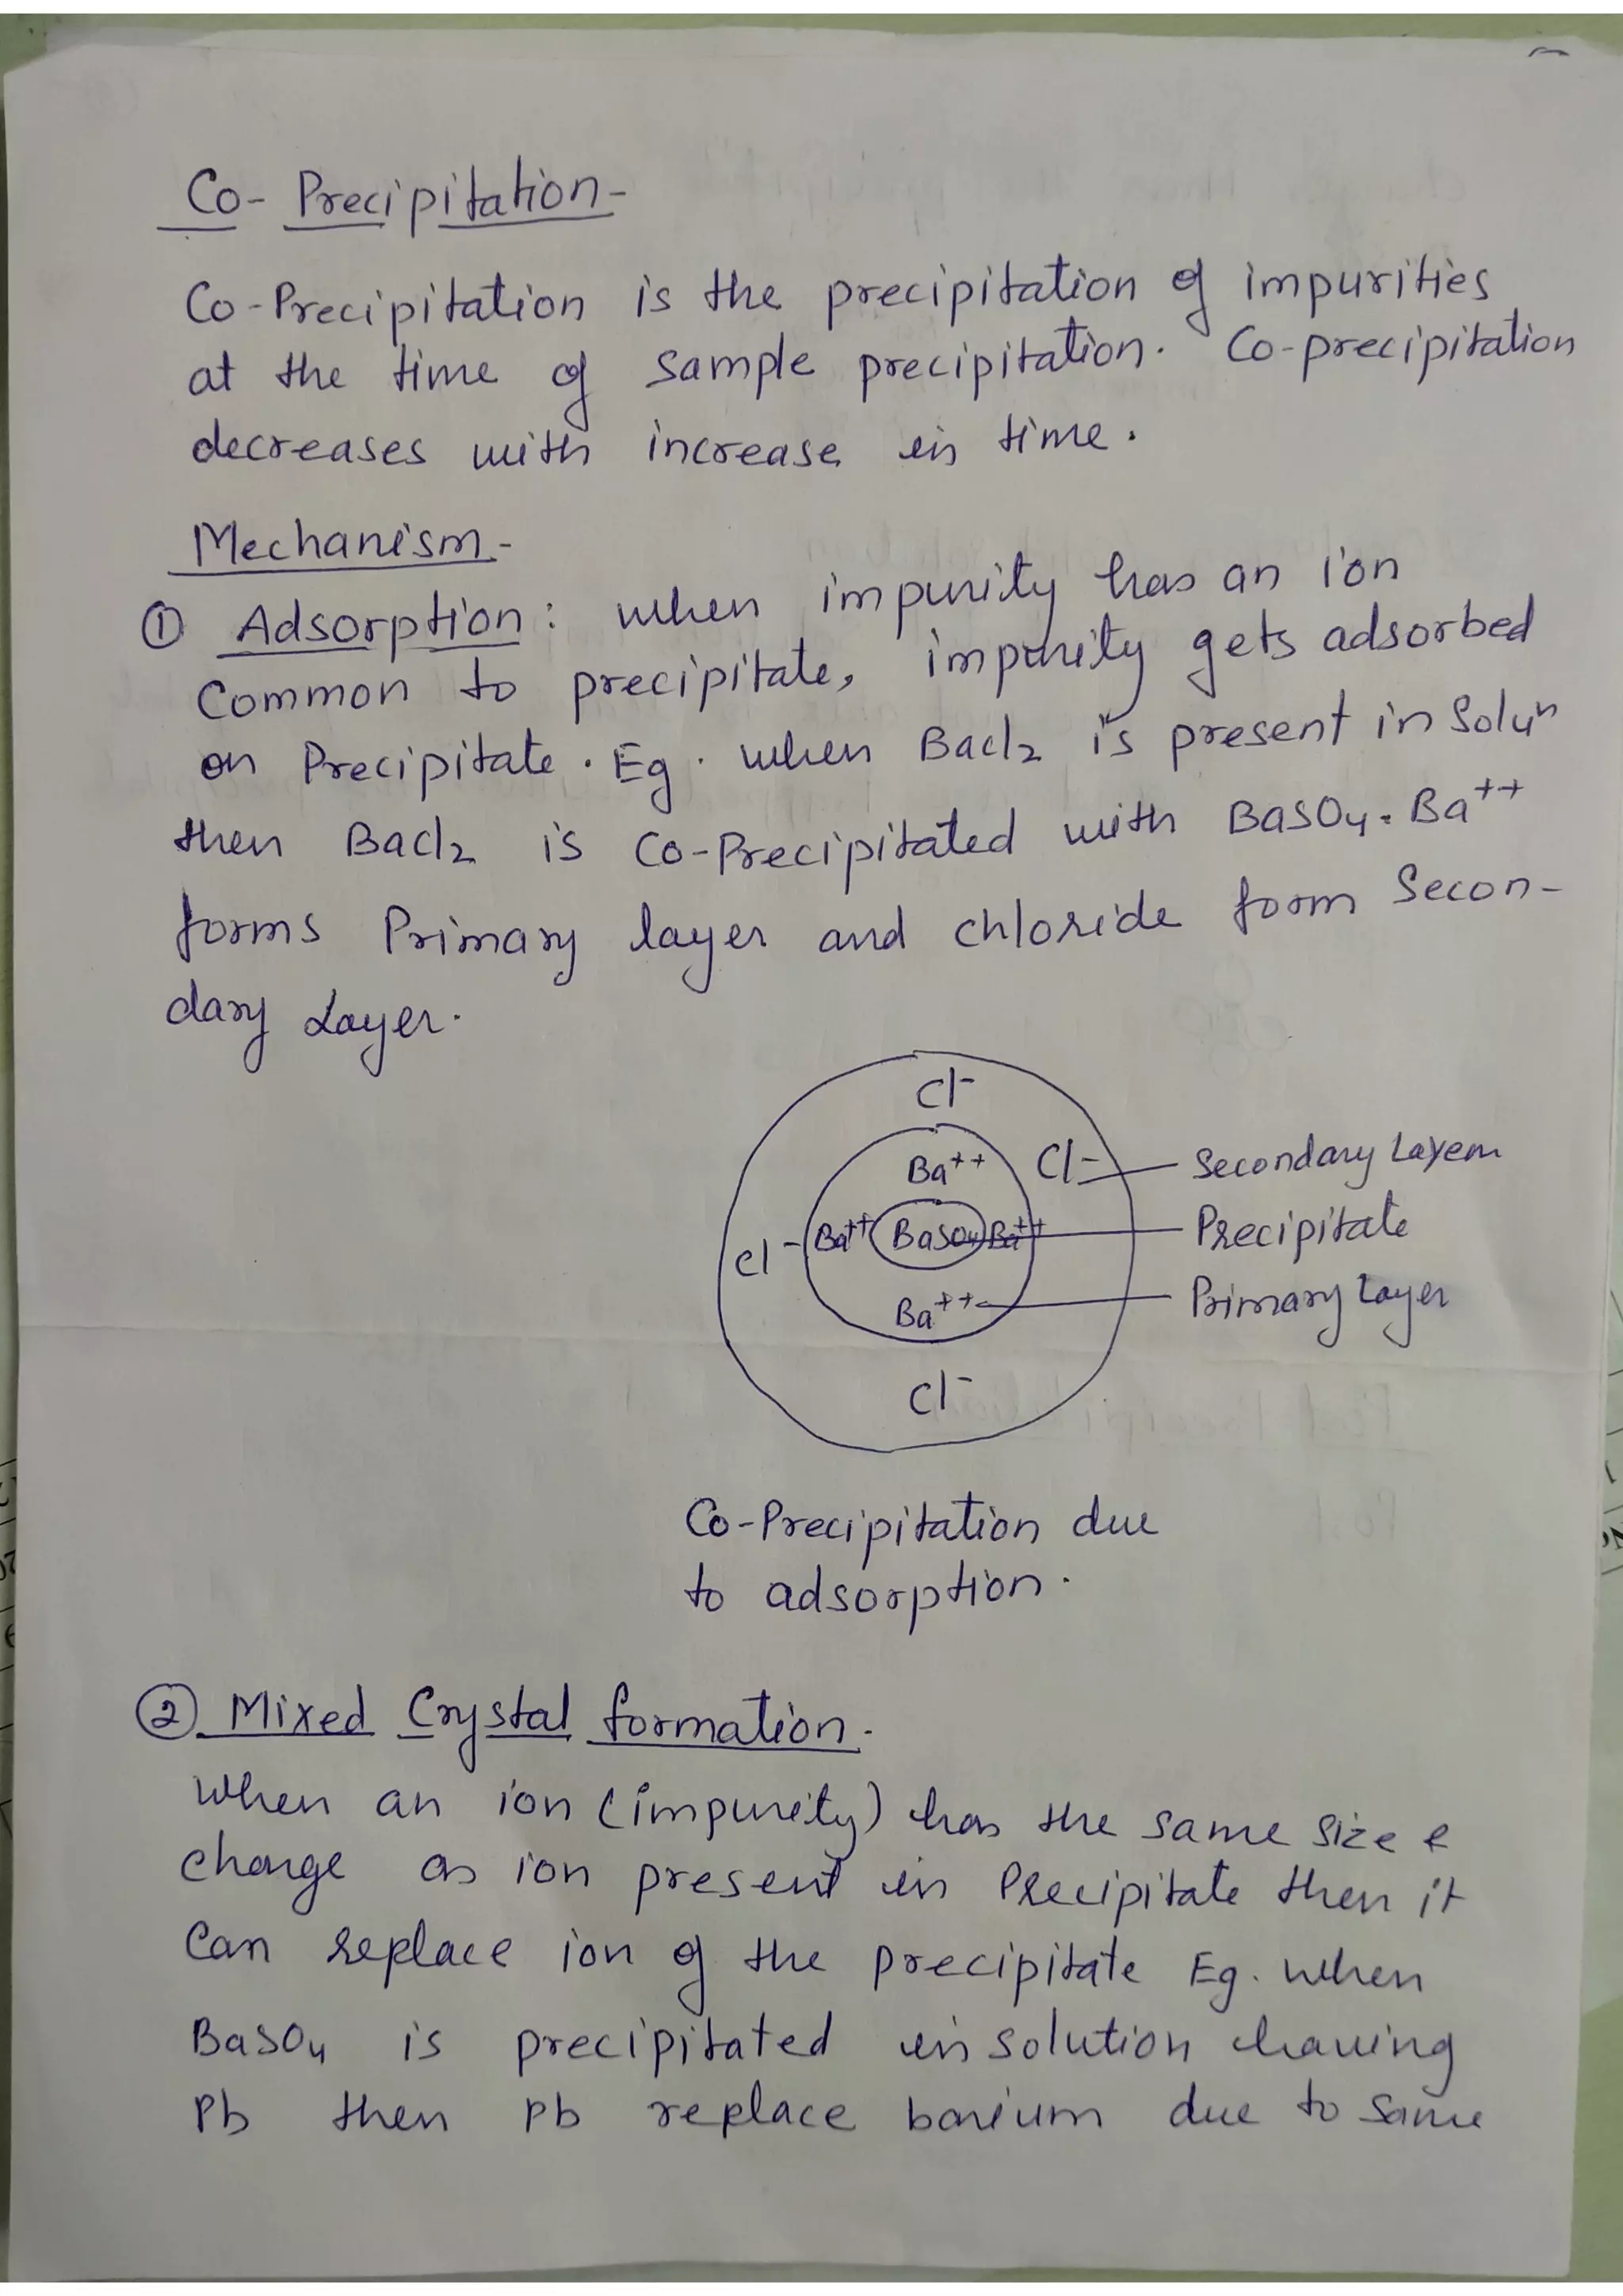 Co- Precipitation-
Co-Precipitation is the precipitation of impurities
at the time of sample precipitation. Co-precipitation
decreases with increase in time.
Mechanism-
① Adsorption: when impurity has an ion
Common to precipitate, impurity gets adsorbed
on Precipitate. Eg. when BaCl₂ is present in Soluⁿ
then BaCl₂ is Co-Precipitated with BaSO₄. Ba⁺⁺
forms Primary layer and chloride form Secon-
dary Layer.
Cl⁻
Ba⁺⁺ Cl⁻ Secondary Layer
Cl⁻ Ba⁺⁺ BaSO₄ Ba⁺⁺ Precipitate
Ba⁺⁺ Primary Layer
Cl⁻
Co-Precipitation due
to adsorption.
② Mixed Crystal formation.
When an ion (impurity) has the same size &
charge as ion present in Precipitate then it
Can replace ion of the precipitate Eg. when
BaSO₄ is precipitated in solution having
Pb then Pb replace barium due to same